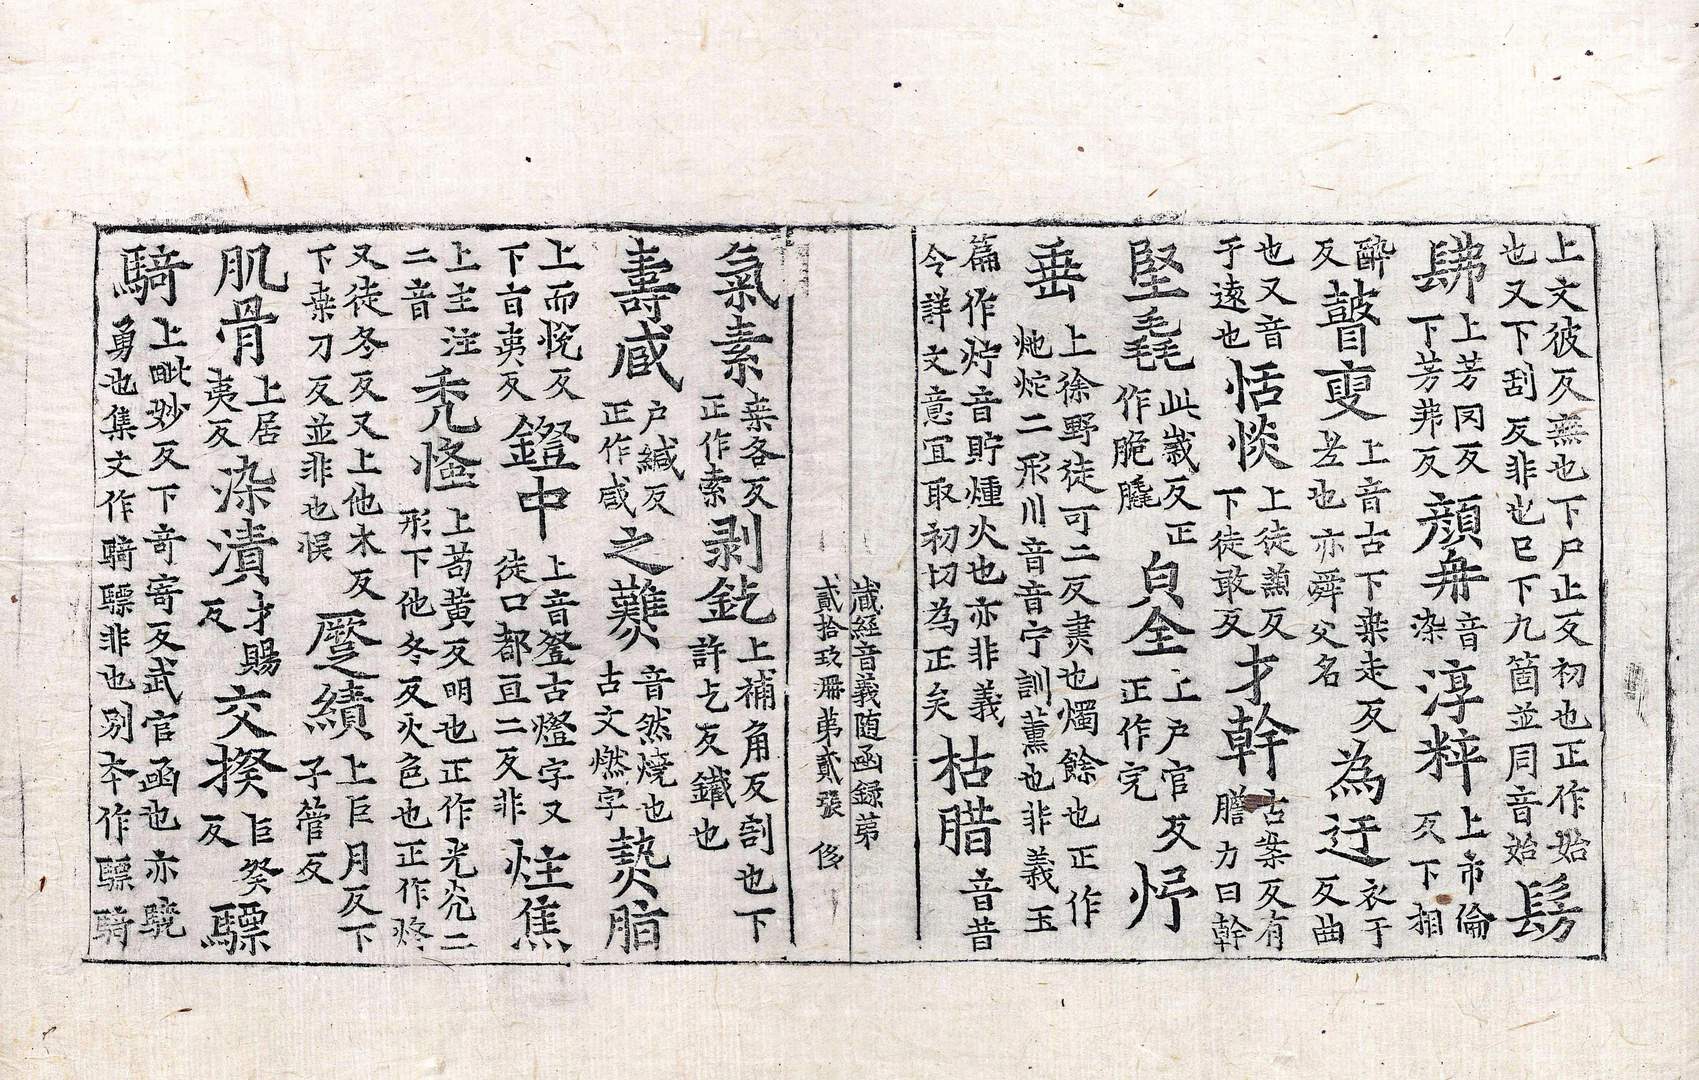 上文彼反無也下尸止反初也正作始
也又下刮反非也巳下九箇並同音始髣
髴上芳冈反下芳弗反顔冉音染淳粹上市倫反下相
醉反瞽叟上音古下桒走反老也亦舜父名為迂衣于反曲
也又音于遠也恬惔上徒蒹反下徒敢反才幹古案反有膽力曰幹
堅毳此歲反正作脆膬皃全上户官反正作完
垂上徐野徒可二反㶳也燭餘也正作灺炨二形川音音宁訓薰也非義玉
篇作㶆音貯煙火也亦非義今詳文意宜取初切為正矣枯腊音昔
藏經音義随函録第
貳拾玖冊苐貳張
氣素桒各反正作索剥釳上補角反割也下許乞反鐵也
壽咸户緘反正作咸之㸐音然燒也古文燃字爇炲
上而悅反下亩夷反鐙中上音登古燈字又徒口都亘二反非炷焦
上主注二音秃㷇上苦黄反明也正作光灮二形下他冬反火色也正作炵
又徒冬反又上他木反下桒刀反並非也悮蹷績上巨月反下子管反
肌骨上居夷反染漬才賜反交揆巨癸反驃
騎上毗妙反下竒寄反武官函也亦驍勇也集文作騎驃非也別本作驃騎